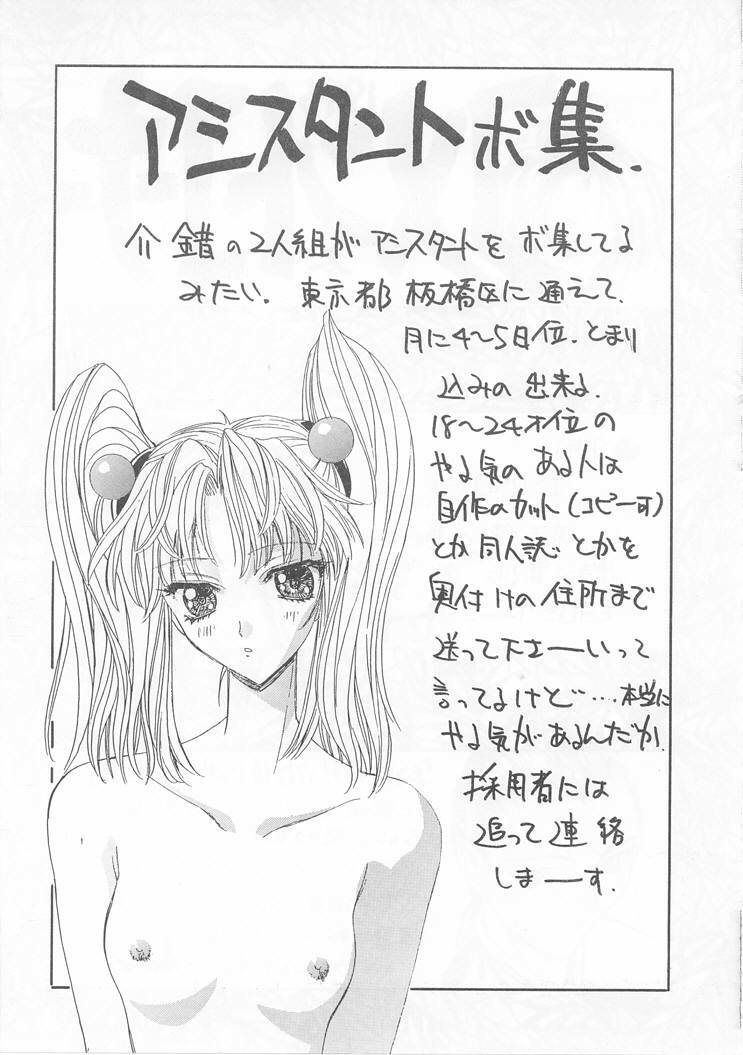 アシスタントボ集.
介錯の2人組がアシスタントをボ集してる
みたい。東京都板橋区に通えて、
月に4〜5日位、とまり
込みの出来る、
18〜24才位の
やる気のある人は
自作のカット(コピー可)
とか同人誌とかを
奥付けの住所まで
送って下さーいって
言ってるけど‥‥本当に
やる気があるんだか、
採用者には
追って連絡
しまーす.